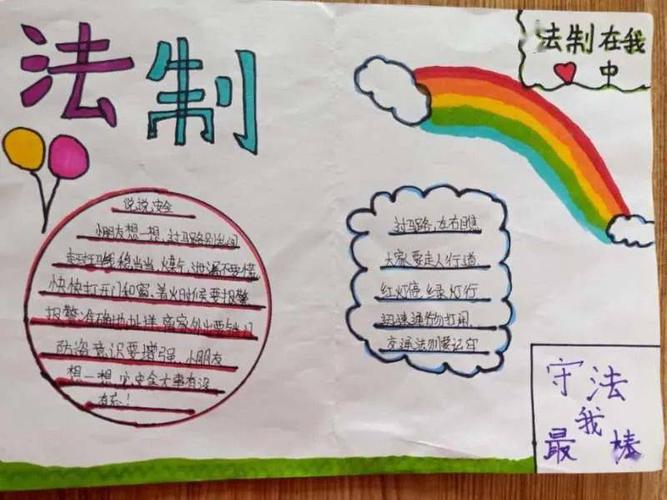 法制
法制在我
中
说说安全
小朋友想一想,过马路别乱闯
走斑马线稳当当,煤气泄漏不要慌
快快打开门和窗,着火时候要报警
报警准确地址详,离家外出要锁门
防盗意识要增强,小朋友
想一想,安全大事有没
有忘!
过马路,左右瞧
大家要走人行道
红灯停,绿灯行
迅速通行勿打闹
交通法则要记牢
守法
我
最棒